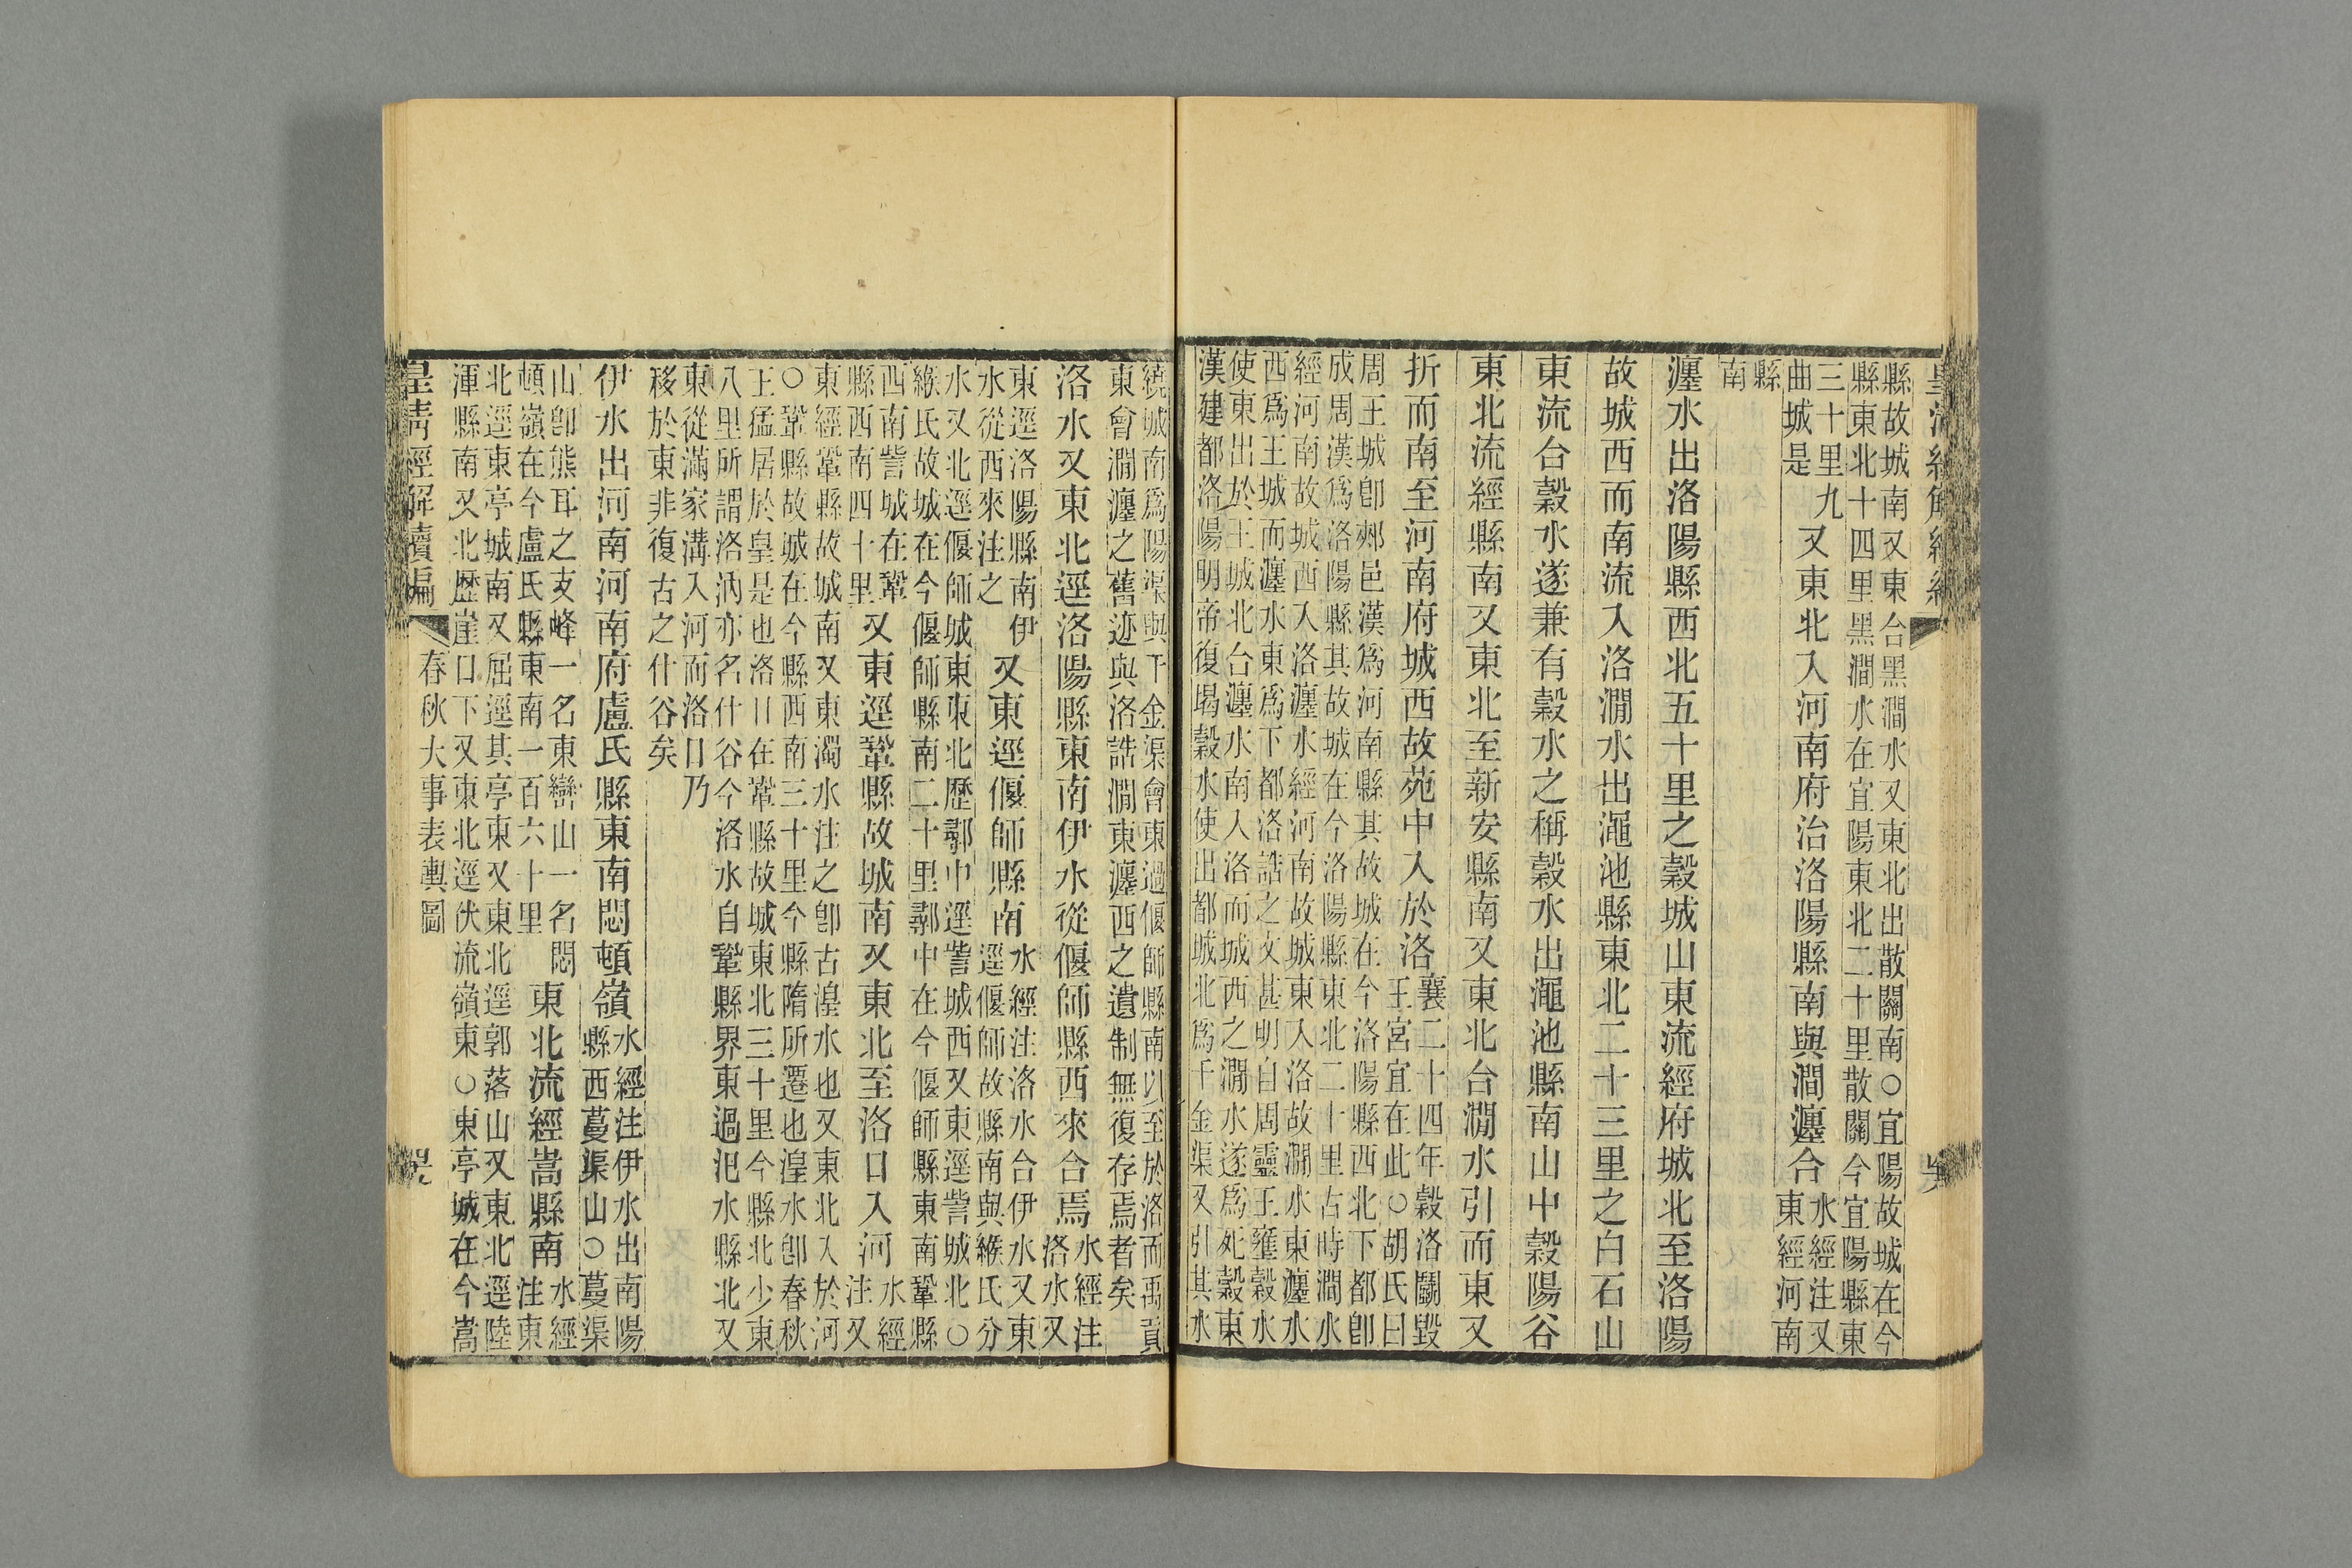 縣故城南又東合黑澗水又東北出散關南○宜陽故城在今
縣東北十四里黑澗水在宜陽東北二十里散關今宜陽縣東
三十里九
曲城是
又東北入河南府治洛陽縣南與澗瀍合
水經注又
東經河南
縣
南
瀍水出洛陽縣西北五十里之穀城山東流經府城北至洛陽
故城西而南流入洛澗水出澠池縣東北二十三里之白石山
東流合穀水遂兼有穀水之稱穀水出澠池縣南山中穀陽谷
東北流經縣南又東北至新安縣南又東北合澗水引而東又
折而南至河南府城西故苑中入於洛
襄二十四年穀洛鬭毀
王宮宜在此○胡氏曰
周王城卽郟邑漢爲河南縣其故城在今洛陽縣西北下都卽
成周漢爲洛陽縣其故城在今洛陽縣東北二十里古時澗水
經河南故城西入洛瀍水經河南故城東入洛故澗水東瀍水
西爲王城而瀍水東爲下都洛誥之文甚明自周靈王壅穀水
使東出於王城北合瀍水南入洛而城西之澗水遂爲死穀東
漢建都洛陽明帝復堨穀水使出都城北爲千金渠又引其水
繞城南爲陽渠與千金渠會東過偃師縣南以至於洛而禹貢
東會澗瀍之舊迹與洛誥澗東瀍西之遺制無復存焉者矣
洛水又東北逕洛陽縣東南伊水從偃師縣西來合焉
水經注
洛水又
東逕洛陽縣南伊
水從西來注之
又東逕偃師縣南
水經注洛水合伊水又東
逕偃師故縣南與緱氏分
水又北逕偃師城東東北歷鄩中逕訾城西又東逕訾城北○
緱氏故城在今偃師縣南二十里鄩中在今偃師縣東南鞏縣
西南訾城在鞏
縣西南四十里
又東逕鞏縣故城南又東北至洛口入河
水經
注又
東經鞏縣故城南又東濁水注之卽古湟水也又東北入於河
○鞏縣故城在今縣西南三十里今縣隋所遷也湟水卽春秋
王猛居於皇是也洛口在鞏縣故城東北三十里今縣北少東
八里所謂洛汭亦名什谷今洛水自鞏縣界東過汜水縣北又
東從滿家溝入河而洛口乃
移於東非復古之什谷矣
伊水出河南河南府盧氏縣東南悶頓嶺
水經注伊水出南陽
縣西蔓渠山○蔓渠
山卽熊耳之支峰一名東巒山一名悶
頓嶺在今盧氏縣東南一百六十里
東北流經嵩縣南
水經
注東
北逕東亭城南又屈逕其亭東又東北逕郭落山又東北逕陸
渾縣南又北歷崖口下又東北逕伏流嶺東○東亭城在今嵩
皇清經解續編
春秋大事表輿圖